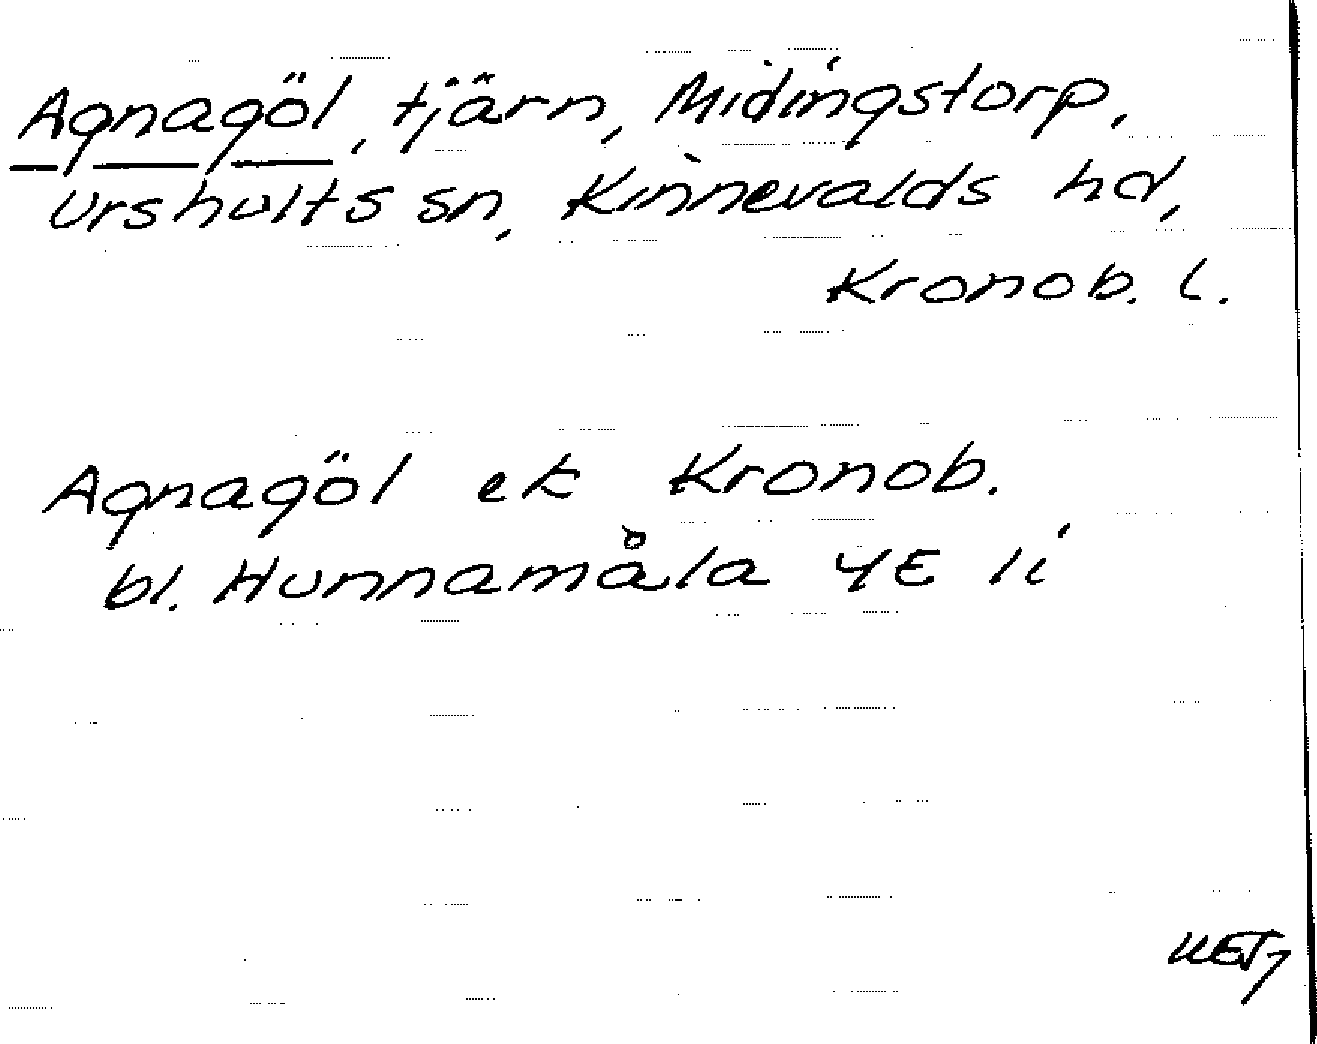 Agnagöl, tjärn, Midingstorp,
Urshults sn, Kinnevalds hd,
Kronob. l.
Agnagöl ek Kronob.
bl. Hunnamåla 4E 1i